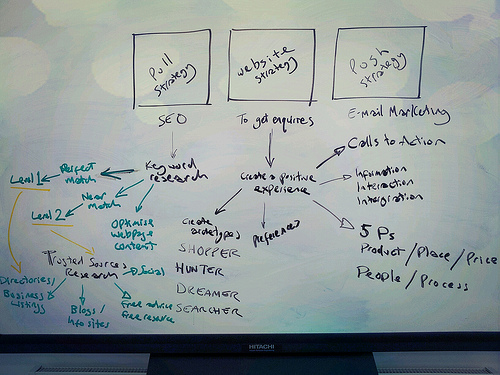 Pull
Strategy
Website
Strategy
Push
Strategy
SEO
To get enquires
E-mail Marketing
Calls to Action
Keyword
research
Create a positive
experience
Information
Interaction
Intergration
Level 1
Perfect
match
Near
match
Level 2
Optimise
webpage
content
Create
archetypes
SHOPPER
HUNTER
DREAMER
SEARCHER
preferences
5 Ps
Product/Place/Price
People/Process
Trusted Sources
Research
Social
Directories/
Business
listings
Blogs/
Info sites
Free advice
free resource
HITACHI